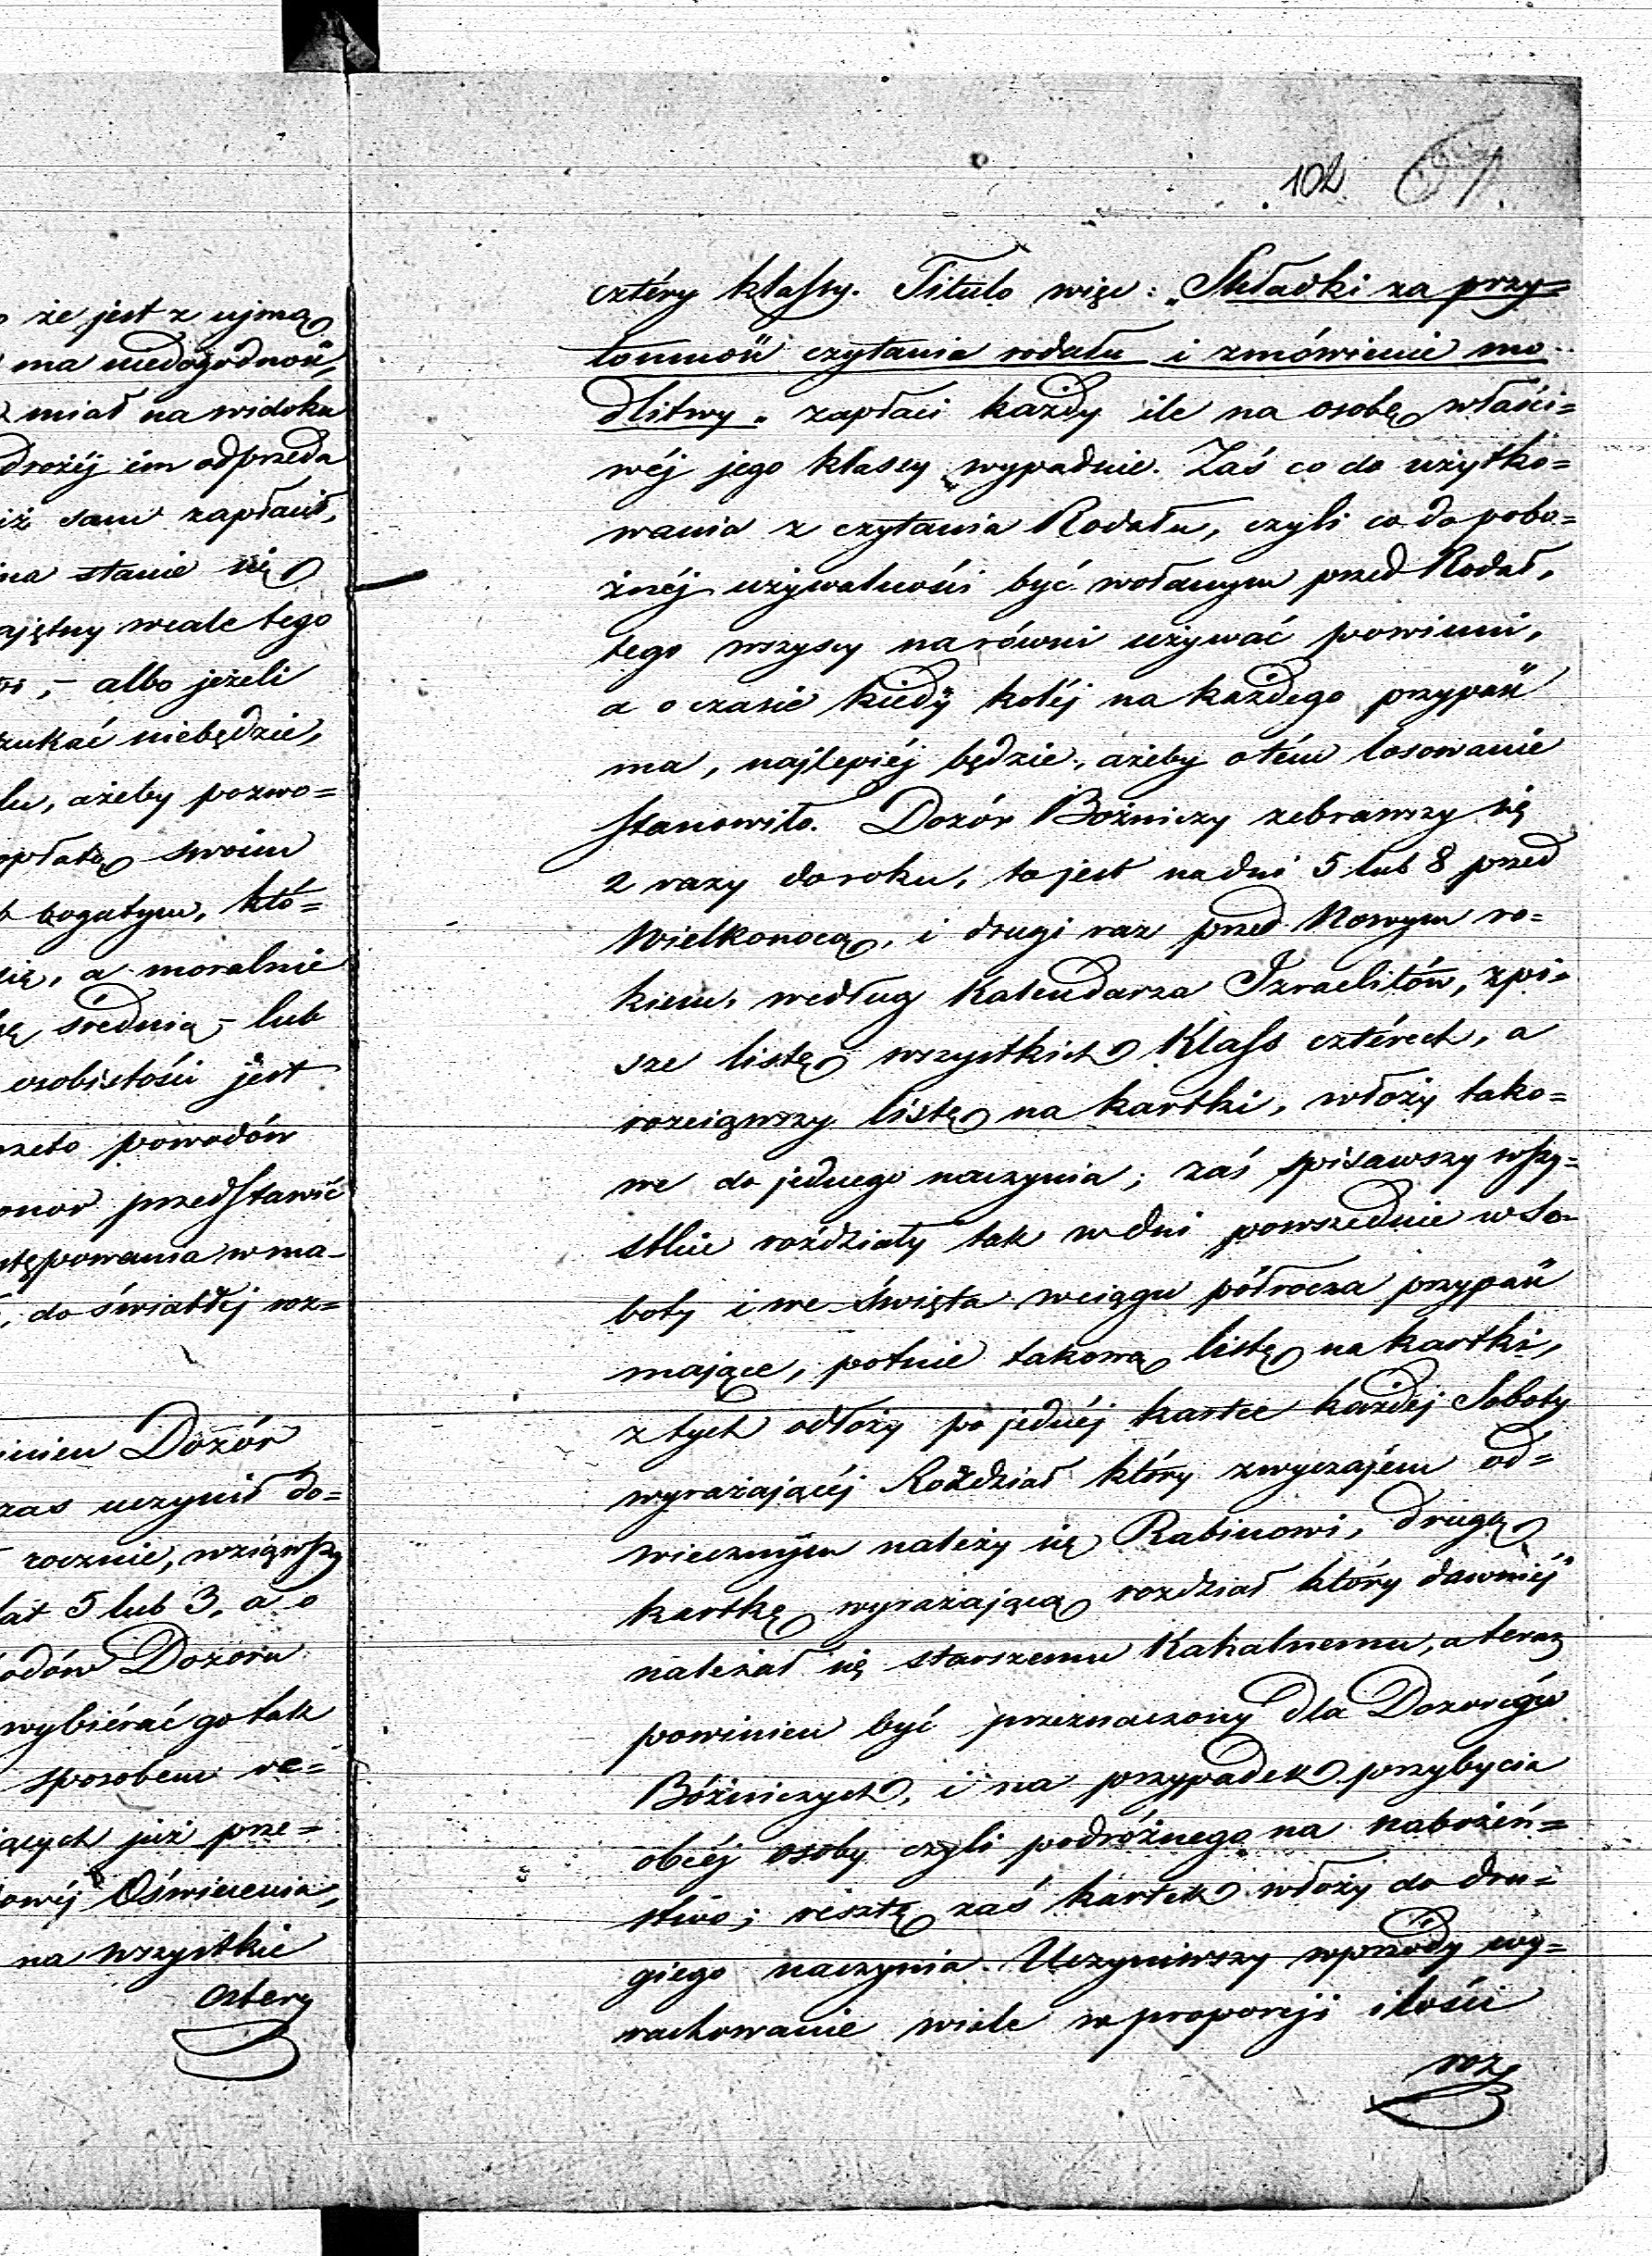 że jest z ujmą
ma niedogodność,
miał na widoku
drożéj im odprzeda
iż sam zapłacił,
na stanie się
wcale tego
albo jeżeli
niebędzie,
ażeby pozwo=
swoim
bogatym, któ=
a moralnie
średnią, - lub
osobistości jest
powodów
przedstawić
w ma-
do światłéj roz=
Dozór
uczynił do=
rocznie, wziąwszy
lat 5 lub 3, a o
Dozoru
wybiérać go tak
sposobem re=
już prze=
Oświecenia,
na wszystkie
cztery
102 67.
cztéry klassy. Titulo więc: „Składki za przy=
tomność czytania rodału i zmówienie mo
dlitwy" zapłaci każdy ile na osobę właści=
wéj jego klassy wypadnie. Zaś co do użytko=
wania z czytania Rodału, czyli co do pobo=
żnéj używalności być wołanym przed Rodał,
tego wszyscy na równi używać powinni,
a o czasie kiedy koléj na każdego przypaść
ma, najlepiéj będzie, ażeby o tém losowanie
stanowiło. Dozór Bożniczy zebrawszy się
2 razy do roku, to jest na dni 5 lub 8 przed
Wielkonocą, i drugi raz przed Nowym ro=
kiem, według Kalendarza Izraelitów, spi=
sze listę wszystkich Klass cztérech, a
rozciąwszy listę na kartki, włoży tako=
we do jednego naczynia; zaś spisawszy wszy=
stkie rozdziały tak w dni powszednie w So-
boty i we święta w ciągu półrocza przypaść
mające, potnie takową listę na kartki,
z tych odłoży po jednéj kartce każdéj Soboty
wyrażającéj Rozdział który zwyczajém od=
wiecznym należy się Rabinowi, drugą
kartkę wyrażającą rozdział który dawniéj
należał się starszemu Kahalnemu, a teraz
powinien być przeznaczony dla Dozorców
Bóżniczych, i na przypadek przybycia
obcéj osoby czyli podróżnego na nabożeń=
stwo; resztę zaś kartek włoży do dru=
giego naczynia. Uczyniwszy wprzódy wy=
rachowanie wiele w proporcji ilości
roz